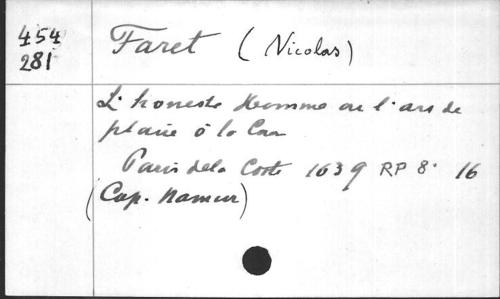 454
281
Faret (Nicolas)
L'honeste Homme ou l'ars de
plaire à la Cour
Paris de la Coste 1639 RP 8° 16
(Cap. Namur)